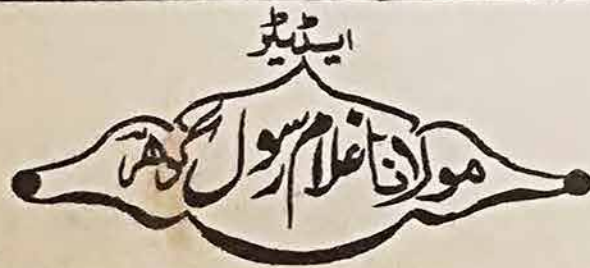 ایڈیٹر
مولانا غلام رسول گوھر